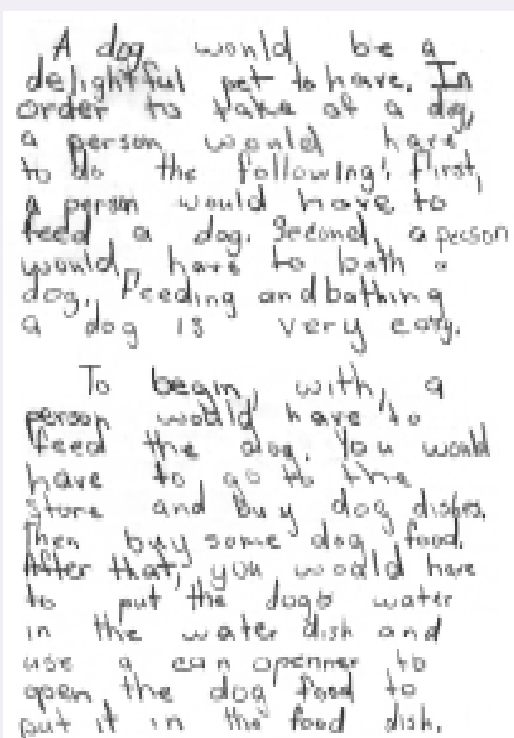 A dog would be a
delightful pet to have. In
order to take of a dog,
a person would have
to do the following: First,
a person would have to
feed a dog. Second, a person
would have to bath a
dog. Feeding and bathing
a dog is very easy.
To begin with, a
person would have to
feed the dog. You would
have to go to the
store and buy dog dishes.
Then buy some dog food.
After that, you would have
to put the dogs water
in the water dish and
use a can openner to
open the dog food to
put it in the food dish.